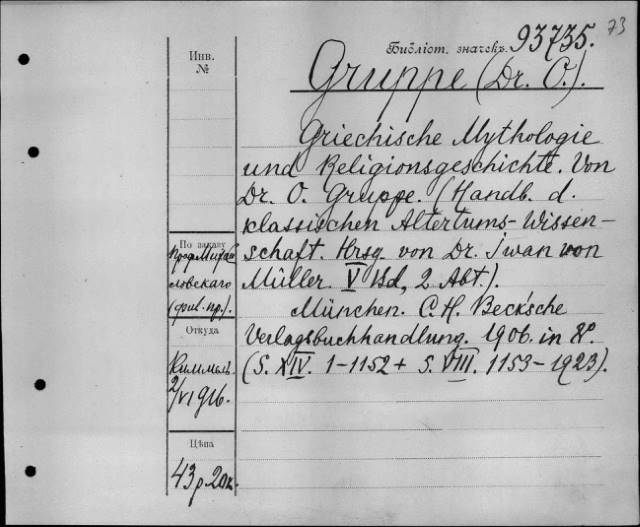 73
Библіот. значекъ. 93735.
Gruppe (Dr. O.).
Инв.
№
Griechische Mythologie
und Religionsgeschichte. Von
Dr. O. Gruppe. (Handb. d.
klassischen Altertums-Wissen-
schaft. Hrsg. von Dr. Iwan von
Müller. V Bd, 2 Abt.).
München. C. H. Beck'sche
Verlagsbuchhandlung. 1906. in 8°.
(S. XIV. 1-1152 + S. VIII. 1153-1923).
По заказу
ловскаго
Откуда
Киммель.
2/VI 916.
Цѣна
43 р. 20 к.